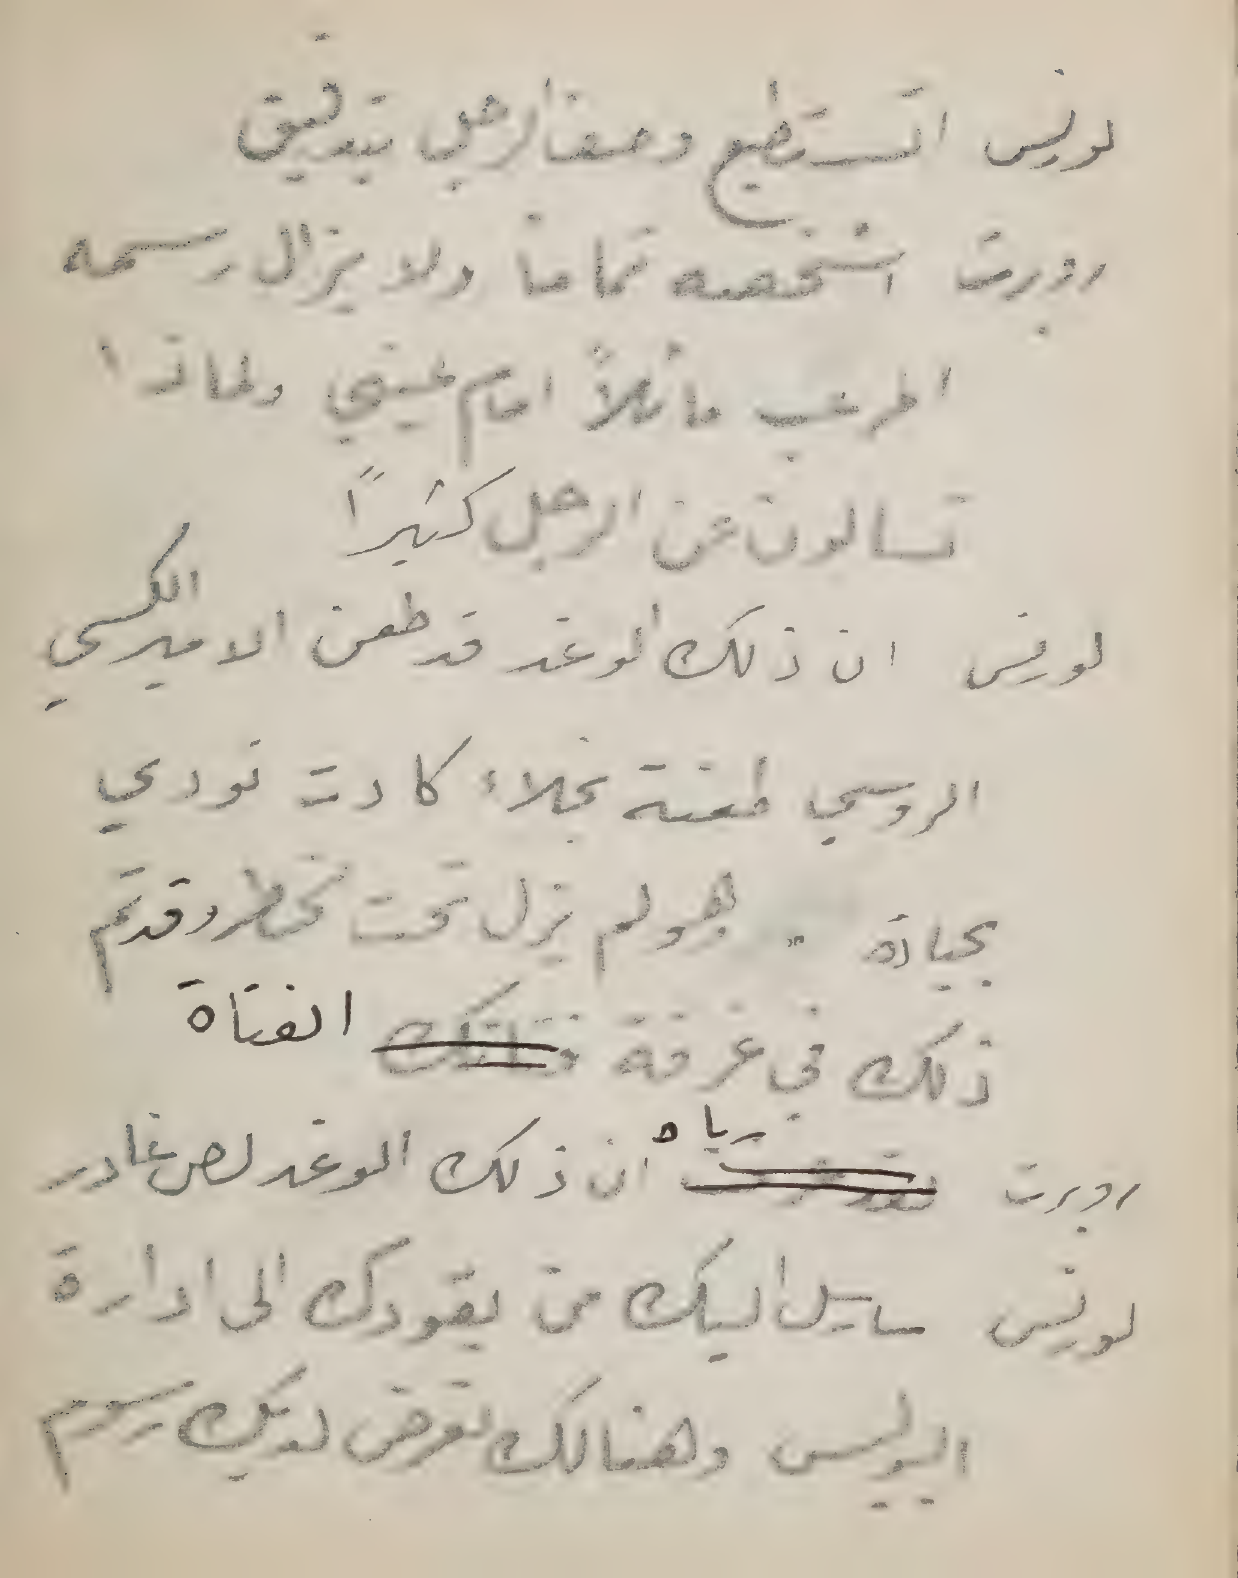 لويس اتستطيع وصف الرجل بتدقيق
روبرت اشخصه تماما ولا يزال رسمه
المرعب ماثلاً امام عيني ولماذا
تسالون عن الرجل كثيراً
لويس ان ذلك الوغد قد طعن الامير الكسي
الروسي طعنة نجلاء كادت تودي
بحياته . فهو لم يزل تحت الخطر وقد تم
ذلك في غرفة فتاتك الفتاة
روبرت رباه ان ذلك الوغد لص غادر
لويس سارسل اليك من يقودك الى ادارة
البوليس وهنالك تعرض لديك رسوم